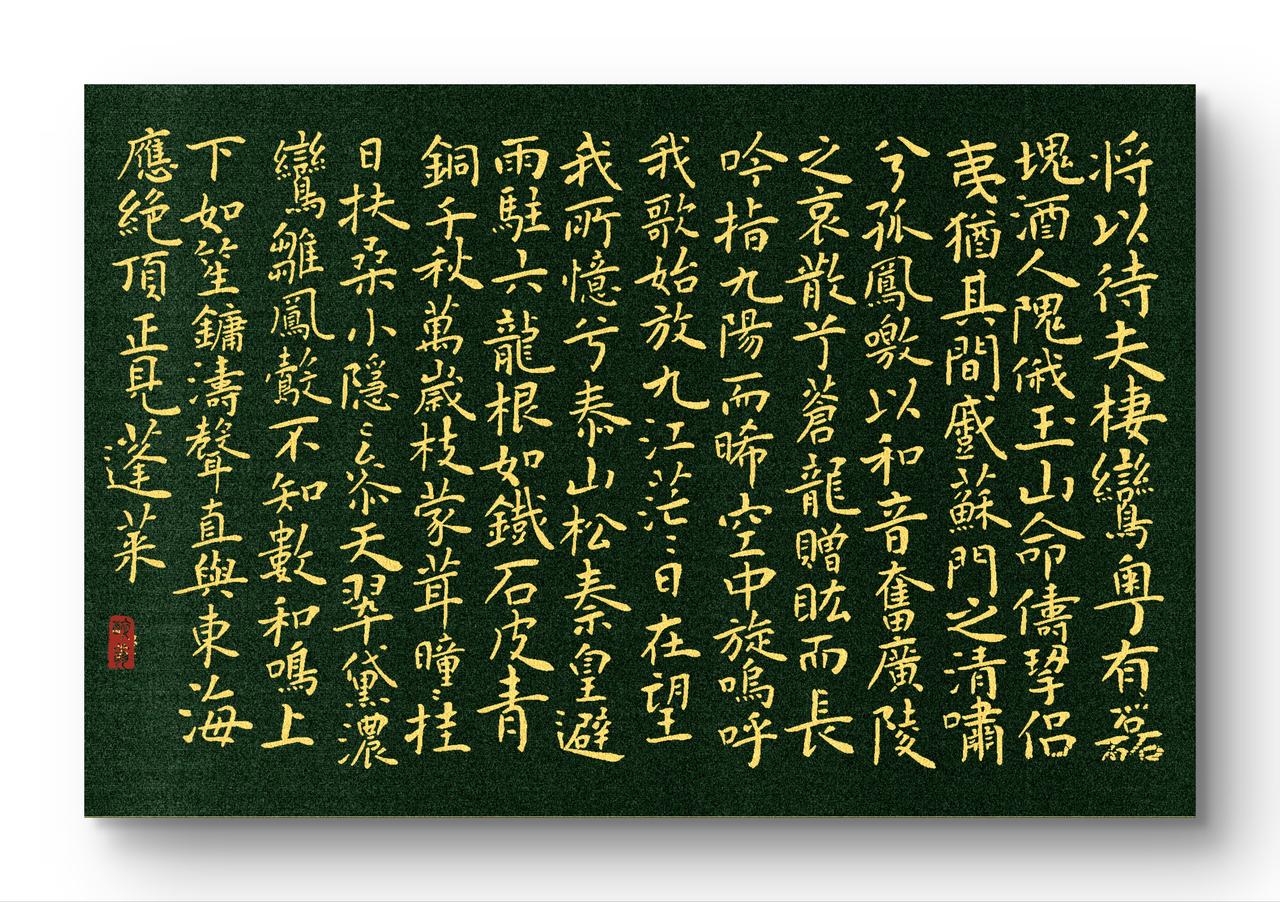 将以待夫棲鸞粵有磊
塊酒人隗俄玉山命儔挈侣
夷猶其間蹙蘇門之清嘯
兮孤鳳噭以和音奮廣陵
之哀散兮蒼龍贈眩而長
吟指九陽而晞空中旋嗚呼
我歌始放九江茫〻日在望
我所憶兮泰山松秦皇避
雨駐六龍根如鐵石皮青
銅千秋萬歲枝蒙茸曈〻挂
日扶桑小隱〻叅天翠黛濃
鸞雛鳳鷇不知數和鳴上
下如笙鏞濤聲直與東海
應絕頂正見蓬萊